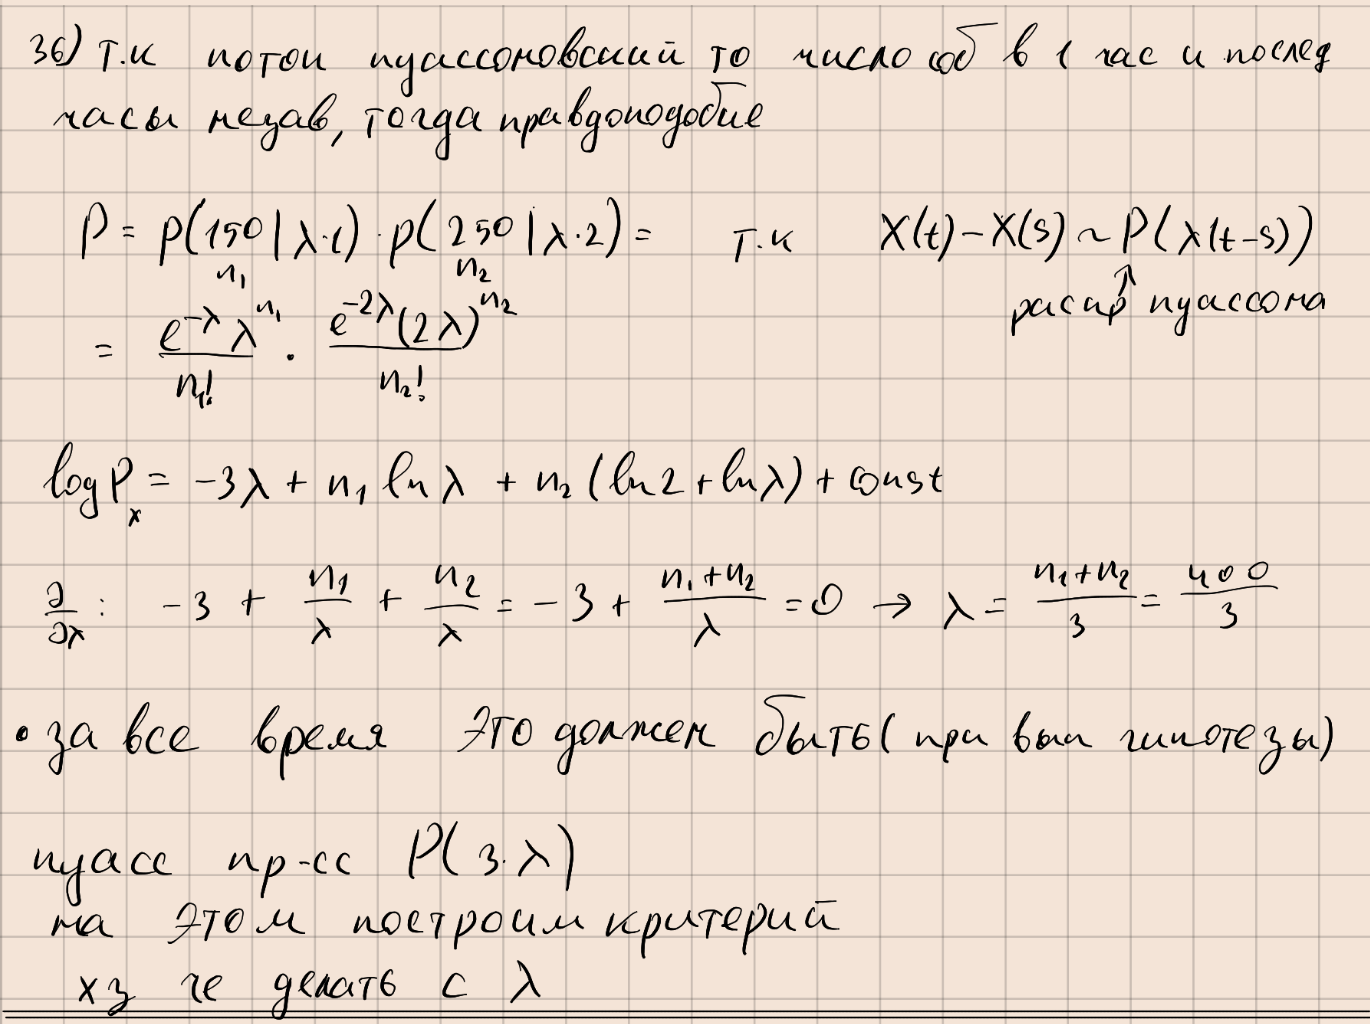 36) Т.к поток пуассоновский то число соб в 1 час и послед
часы незав, тогда правдоподобие
P = p(150 | λ·1) · p(250 | λ·2) = т.к X(t) - X(s) ~ P(λ(t-s))
n₁ n₂ ↑
распр пуассона
= e^{-λ} λ^{n₁} / n₁! · e^{-2λ} (2λ)^{n₂} / n₂!
log P_x = -3λ + n₁ ln λ + n₂ (ln 2 + ln λ) + const
∂/∂λ : -3 + n₁/λ + n₂/λ = -3 + (n₁+n₂)/λ = 0 → λ = (n₁+n₂)/3 = 400/3
• за все время это должен быть (при вып гипотезы)
пуасс пр-сс P(3·λ)
на этом построим критерий
хз че делать с λ